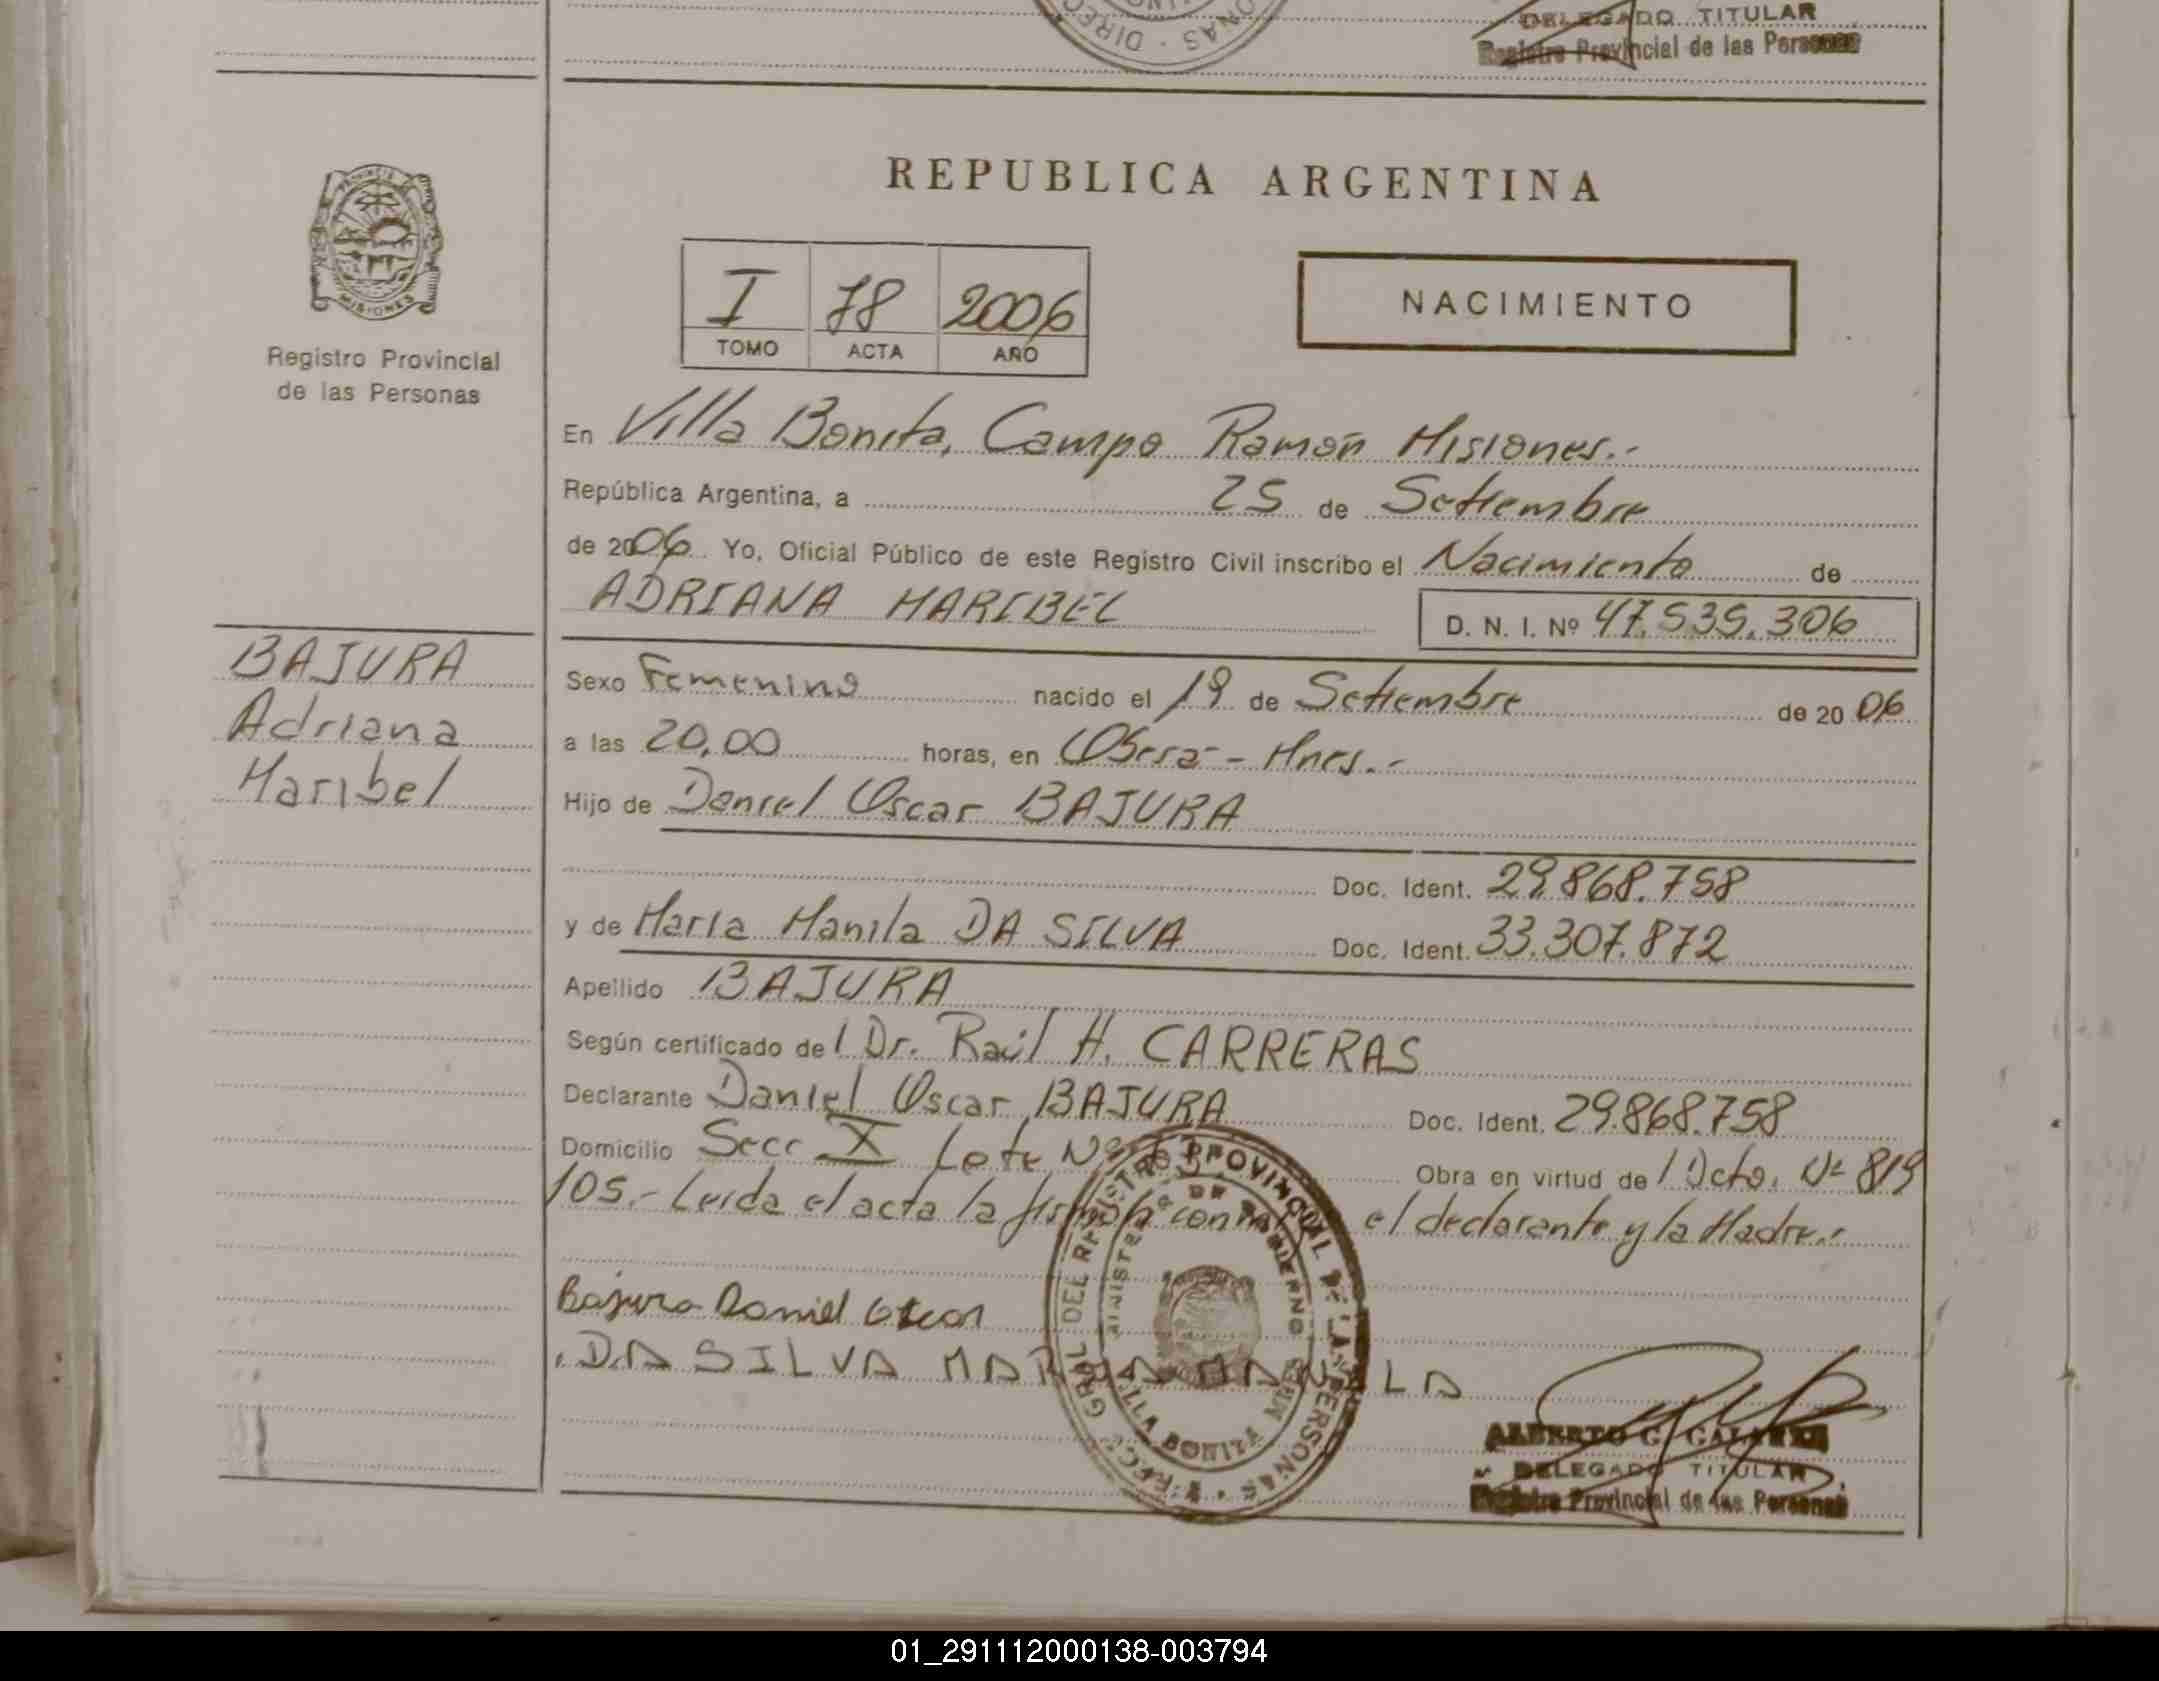 DELEGADO TITULAR
Registro Provincial de las Personas
PROVINCIA DE
MISIONES
Registro Provincial
de las Personas
REPUBLICA ARGENTINA
I 78 2006
TOMO ACTA AÑO
NACIMIENTO
En Villa Bonita, Campo Ramón Misiones.-
República Argentina, a 25 de Setiembre
de 2006 Yo, Oficial Público de este Registro Civil inscribo el Nacimiento de
ADRIANA MARIBEL
D. N. I. Nº 47.535.306
BAJURA
Adriana
Maribel
Sexo Femenino nacido el 19 de Setiembre de 2006
a las 20,00 horas, en Oberá - Mnes.-
Hijo de Daniel Oscar BAJURA
Doc. Ident. 29.868.758
y de María Manila DA SILVA Doc. Ident. 33.307.872
Apellido BAJURA
Según certificado del Dr. Raúl H. CARRERAS
Declarante Daniel Oscar BAJURA Doc. Ident. 29.868.758
Domicilio Secc X Lote Nº Obra en virtud del Dcto. Nº 819
105.- Leída el acta la firman el declarante y la Madre.-
Bajura Daniel Oscar
DA SILVA MARIA MANILA
GRAL DEL REGISTRO PROVINCIAL DE LAS PERSONAS
MINISTERIO DE GOBIERNO
VILLA BONITA MNES
ALBERTO G.
DELEGADO TITULAR
Registro Provincial de las Personas
01_291112000138-003794